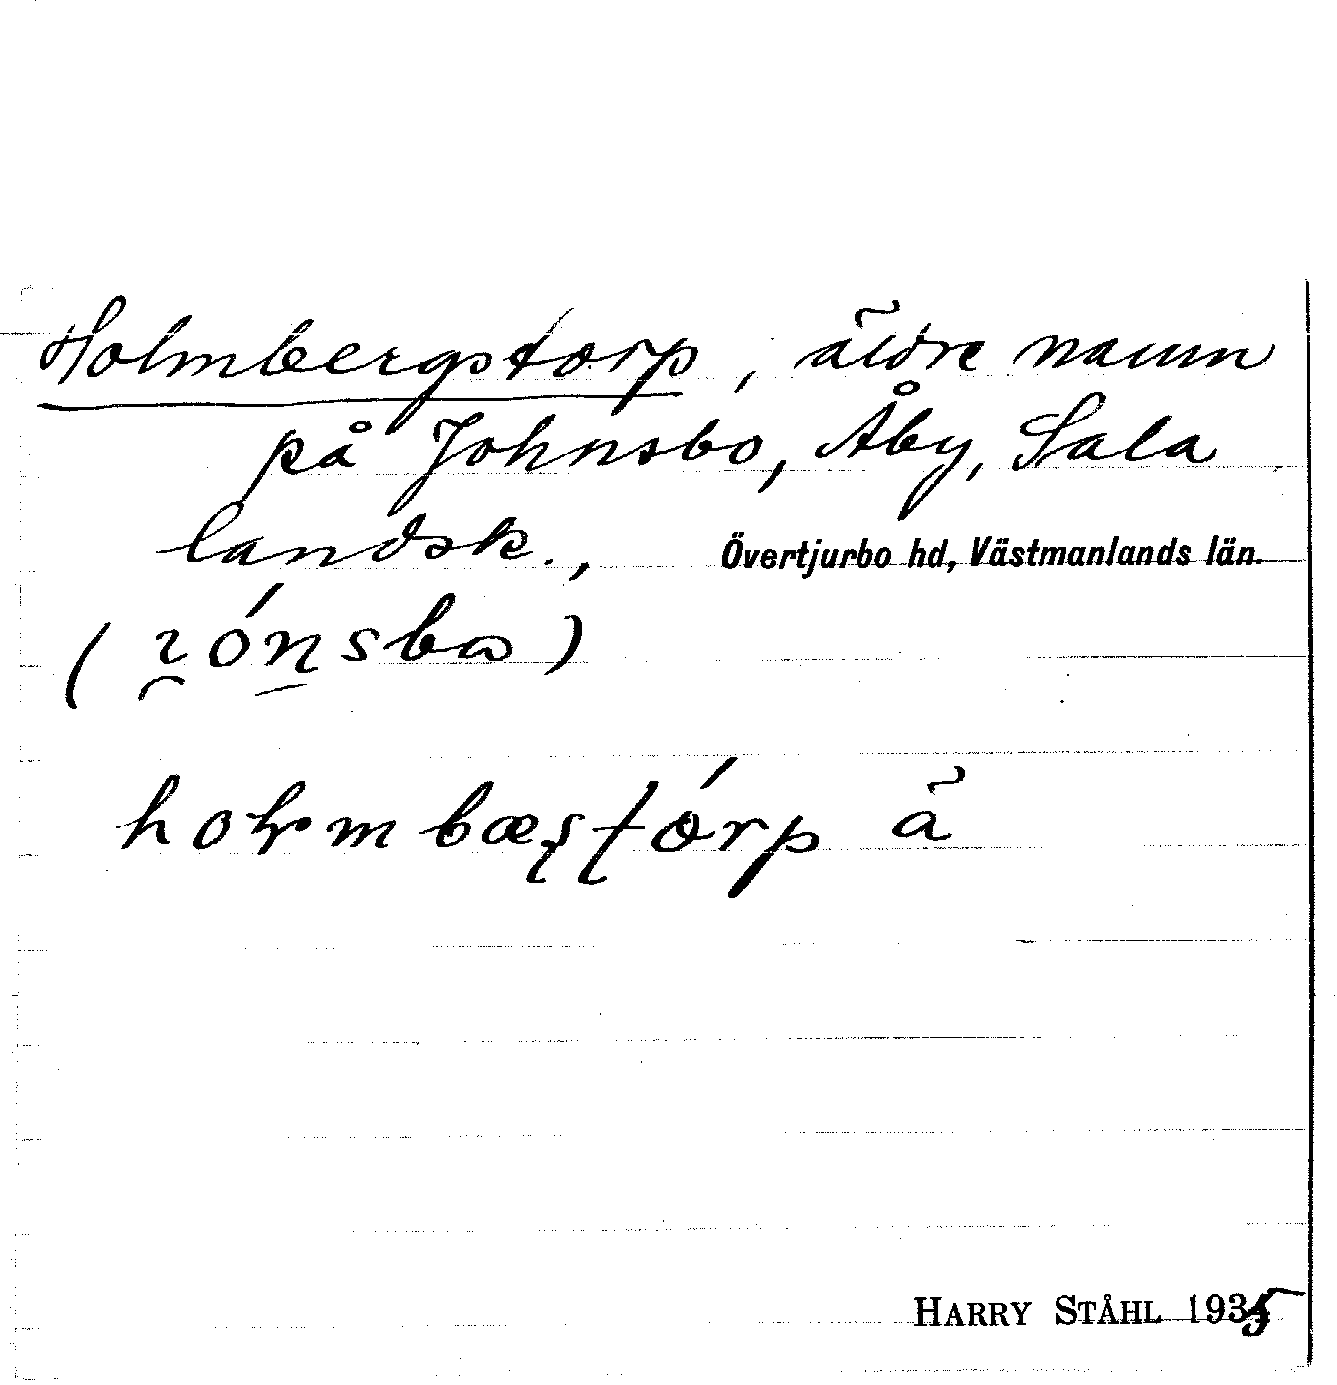 Holmbergstorp, äldre namn
på Johnsbo, Åby, Sala
landsk., Övertjurbo hd, Västmanlands län.
HARRY STÅHL 1935